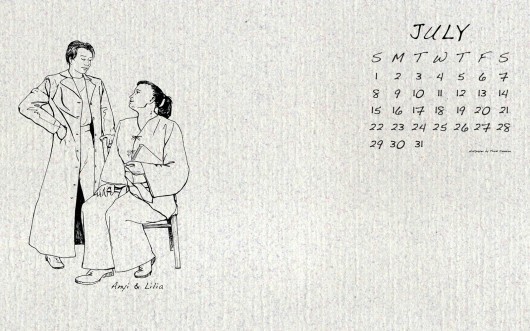 JULY
S M T W T F S
1 2 3 4 5 6 7
8 9 10 11 12 13 14
15 16 17 18 19 20 21
22 23 24 25 26 27 28
29 30 31
& Lilia